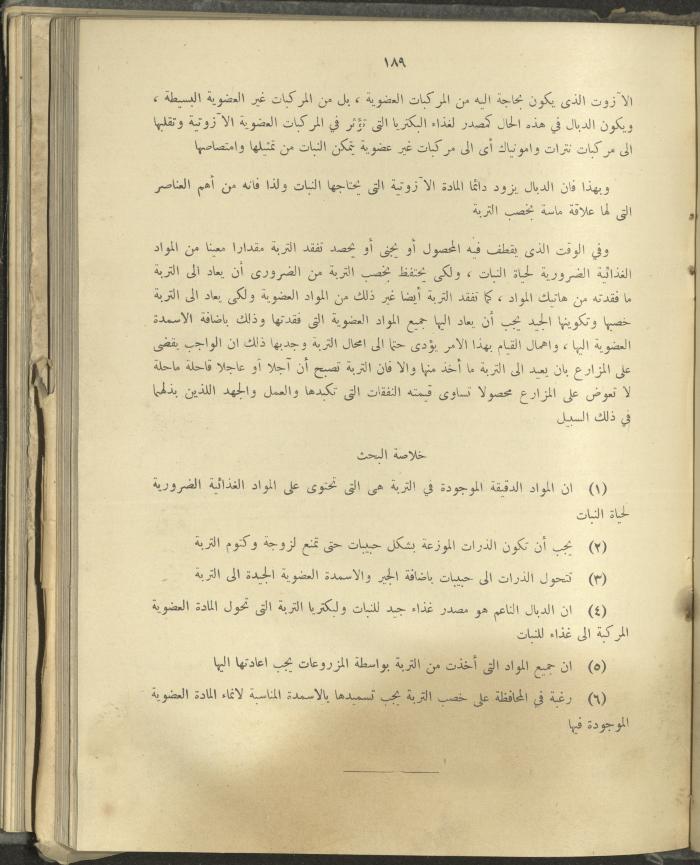 ١٨٩
الآزوت الذى يكون بحاجة اليه من المركبات العضوية ، بل من المركبات غير العضوية البسيطة ،
ويكون الدبال في هذه الحال كمصدر لغذاء البكتريا التى تؤثر في المركبات العضوية الآزوتية وتقلبها
الى مركبات نترات وامونياك أى الى مركبات غير عضوية يتمكن النبات من تمثيلها وامتصاصها
وبهذا فان الدبال يزود دائما المادة الآزوتية التى يحتاجها النبات ولذا فانه من أهم العناصر
التى لها علاقة ماسة بخصب التربة
وفى الوقت الذى يقطف فيه المحصول أو يجنى أو يحصد تفقد التربة مقدارا معينا من المواد
الغذائية الضرورية لحياة النبات ، ولكى يحتفظ بخصب التربة من الضرورى أن يعاد الى التربة
ما فقدته من هاتيك المواد ، كما تفقد التربة أيضا غير ذلك من المواد العضوية ولكى يعاد الى التربة
خصبها وتكوينها الجيد يجب أن يعاد اليها جميع المواد العضوية التى فقدتها وذلك باضافة الاسمدة
العضوية اليها ، واهمال القيام بهذا الامر يؤدى حتما الى امحال التربة وجدبها ذلك ان الواجب يقضى
على المزارع بان يعيد الى التربة ما أخذ منها والا فان التربة تصبح أن آجلا أو عاجلا قاحلة ماحلة
لا تعوض على المزارع محصولا تساوى قيمته النفقات التى تكبدها والعمل والجهد اللذين بذلهما
في ذلك السبيل
خلاصة البحث
(١) ان المواد الدقيقة الموجودة في التربة هى التى تحتوى على المواد الغذائية الضرورية
لحياة النبات
(٢) يجب أن تكون الذرات الموزعة بشكل حبيبات حتى تمنع لزوجة وكتوم التربة
(٣) تتحول الذرات الى حبيبات باضافة الجير والاسمدة العضوية الجيدة الى التربة
(٤) ان الدبال الناعم هو مصدر غذاء جيد للنبات ولبكتريا التربة التى تحول المادة العضوية
المركبة الى غذاء للنبات
(٥) ان جميع المواد التى أخذت من التربة بواسطة المزروعات يجب اعادتها اليها
(٦) رغبة في المحافظة على خصب التربة يجب تسميدها بالاسمدة المناسبة لانماء المادة العضوية
الموجودة فيها